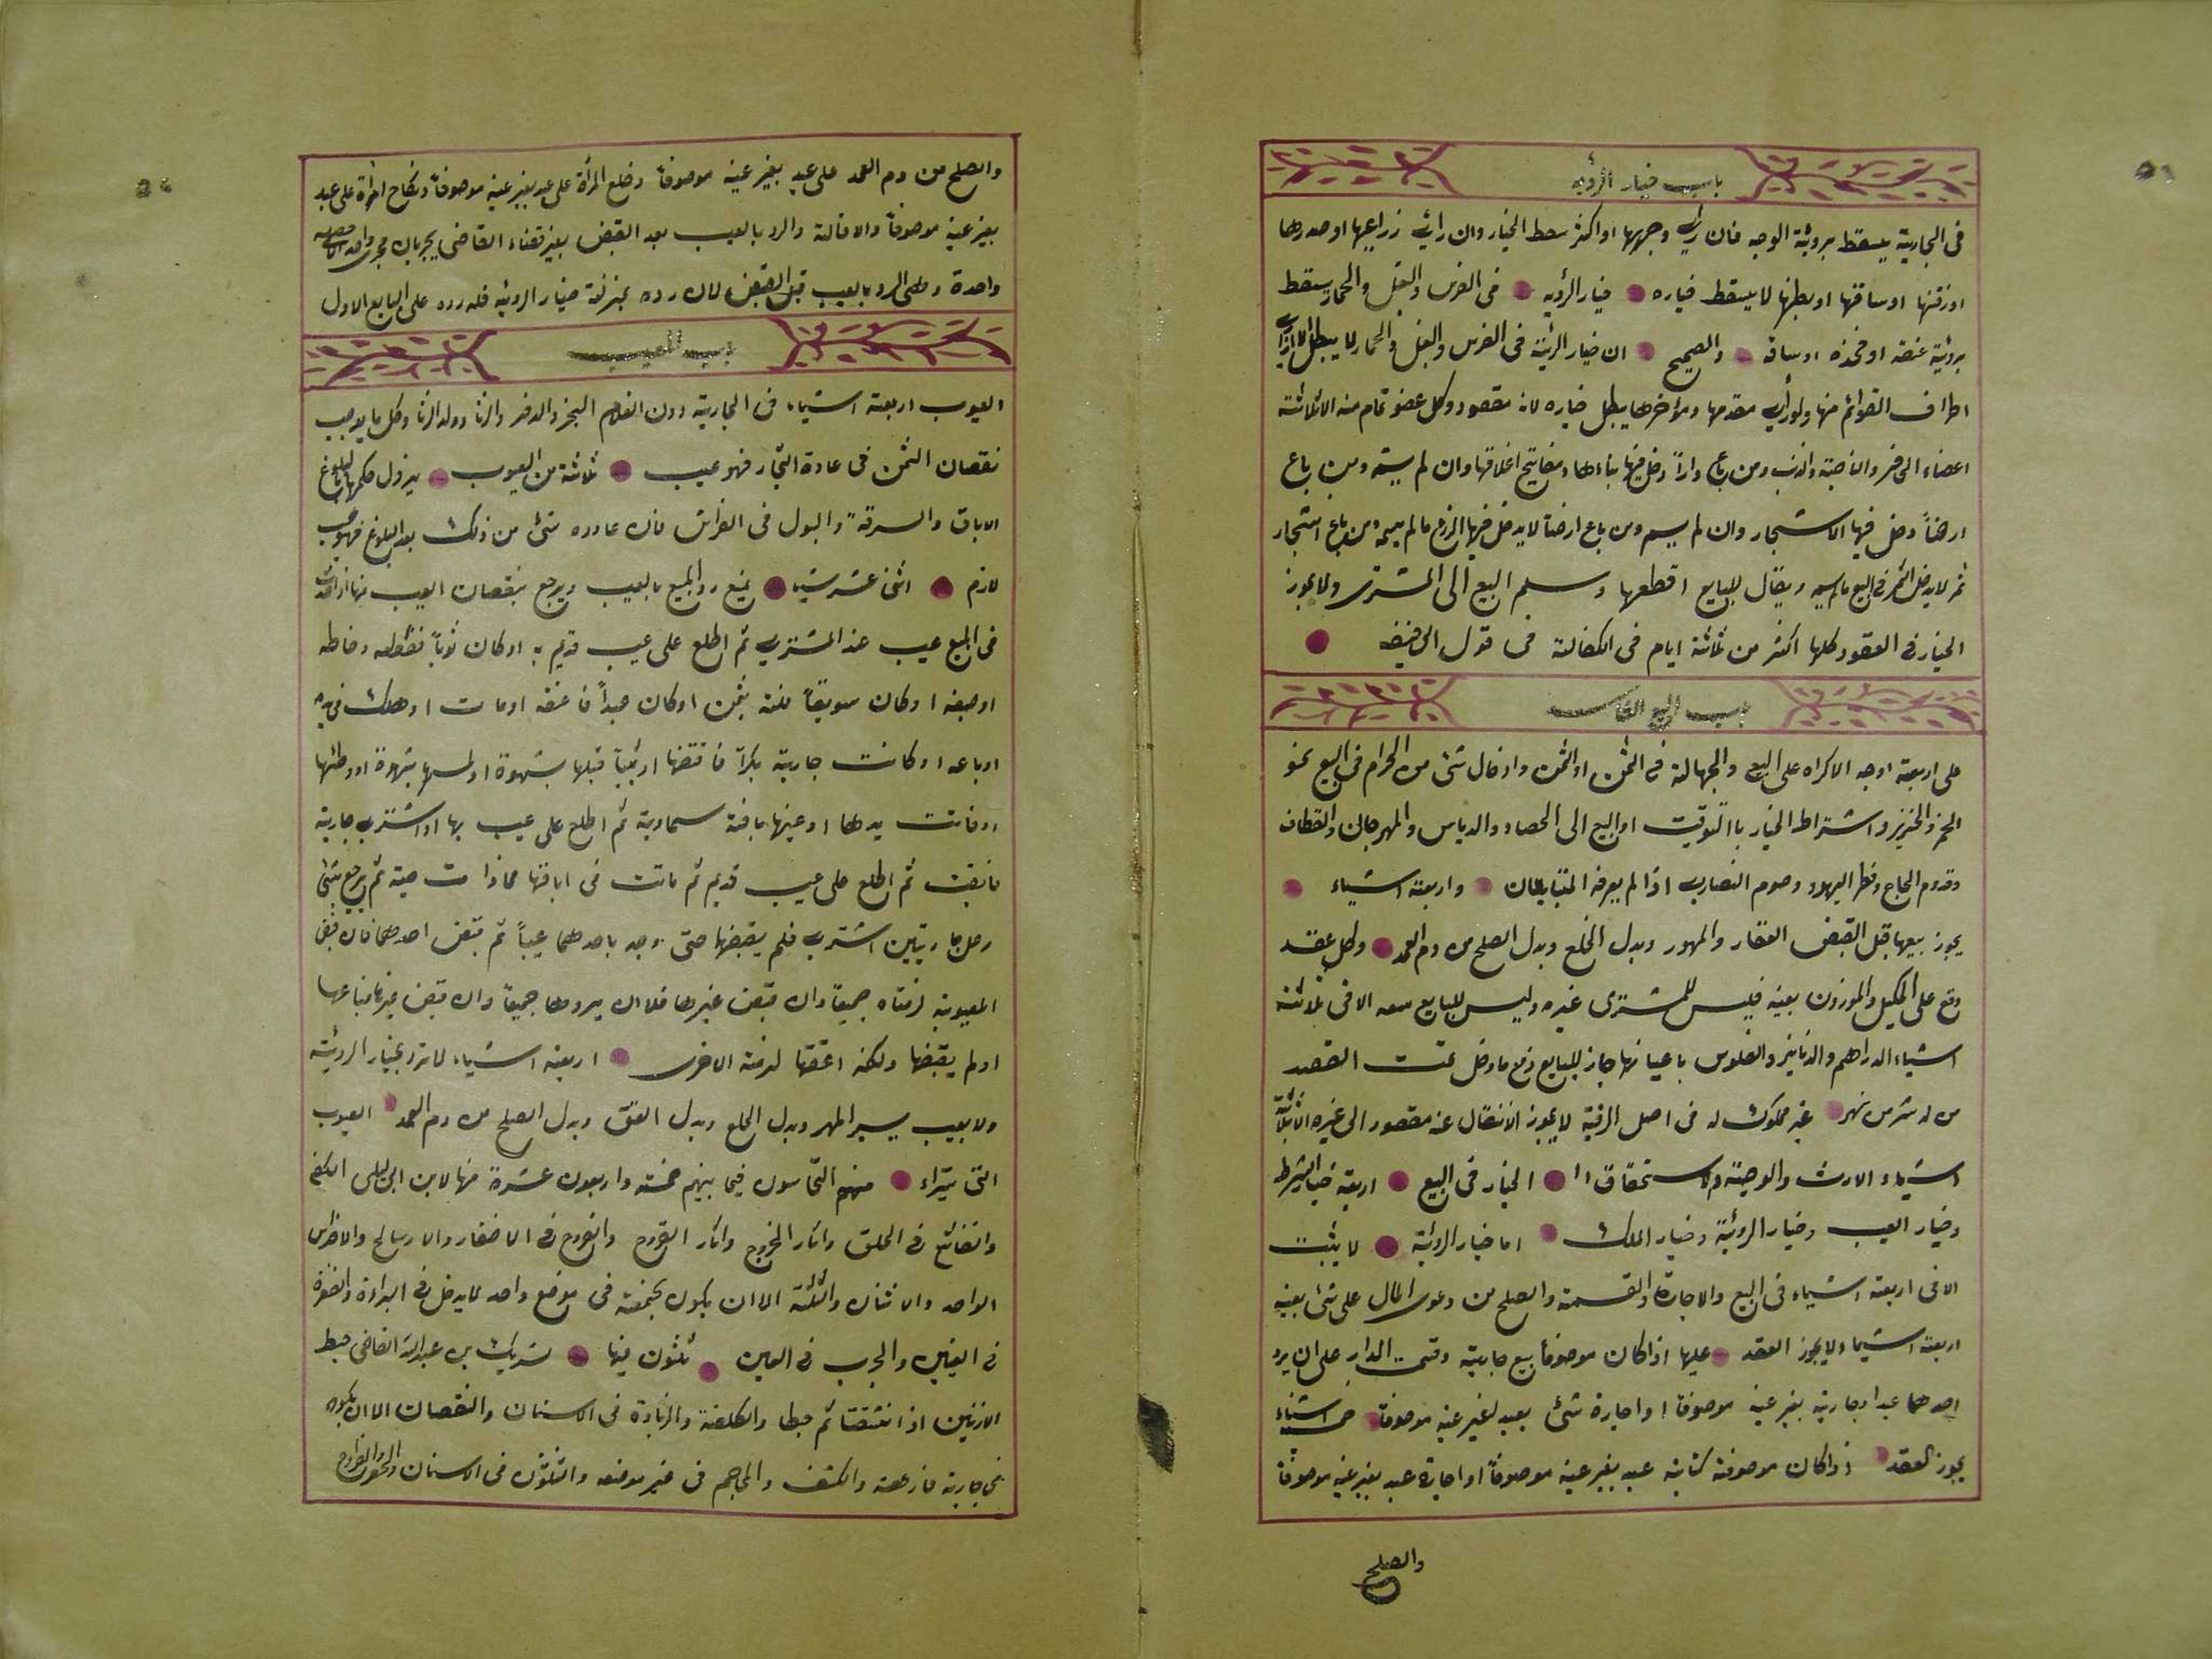 باب خيار الرؤيه
فى الجارية يسقط برؤية الوجه فان رأى وجهها او اكثر سقط الخيار وان رأى ذراعيها او صدرها
او ساقها او بطنها لا يسقط خياره خيار الرؤيه فى الفرس والبغل والحمار يسقط
برؤية عنقه او فخذه او ساقه والصحيح ان خيار الرؤية فى الفرس والبغل والحمار لا يبطل
اطراف القوائم منها ولو رأى مقدمها ومؤخرها يبطل خياره لانه مقصود وكل عضو تمام منه الا ثلاثة
اعضاء الحافر والناصية والذنب ومن باع داراً دخل فيها بناءها ومفاتيح اغلاقها وان لم يسمه ومن باع
ارضاً دخل فيها الاشجار وان لم يسم ومن باع ارضاً لا يدخل فيها الزرع مالم يسمه ومن باع اشجار
ثمر لا يدخل الثمر فى البيع مالم يسمه ويقال للبايع اقطعها وسلم البيع الى المشترى ولا يجوز
الخيار فى العقود كلها اكثر من ثلاثة ايام فى الكفالة فى قول ابى حنيفه
باب البيع الفاسد
على اربعة اوجه الاكراه على البيع والجهالة فى الثمن او المثمن وادخال شئ من الحرام فى البيع نحو
الخمر والخنزير واشتراط الخيار باالتوقيت او البيع الى الحصاد والدياس والمهرجان والقطاف
وقدوم الحاج وفطر اليهود وصوم النصارى اذا لم يعرفه المتبايعان واربعة اشياء
يجوز بيعها قبل القبض العقار والمهور وبدل الخلع وبدل الصلح من دم العمد وكل عقد
وقع على المكيل والموزون بعينه فليس للمشترى غيره وليس للبايع منعه الا فى ثلاثة
اشياء الدراهم والدنانير والفلوس باعيانها جاز للبايع دفع ما دخل تحت العقد
من له شرب من نهر غير مملوك له فى اصل الرقبة لا يجوز الانتقال عنه مقصور الى غيره الا ثلاثة
اشياء الارث والوصية والاستحقاق الخيار فى البيع اربعة خيار الشرط
وخيار العيب وخيار الرؤية وخيار الملك اما خيار الرؤية لا يثبت
الا فى اربعة اشياء فى البيع والاجارة والقسمة والصلح من دعوى المال على شئ بعينه
اربعة اشياء ولا يجوز العقد عليها اذا كان موصوفاً بيع جارية وقسمت الدار على ان يرد
احدهما عبدا او جارية بغير عينه موصوفا او اجارة شئ بعبد لغير عينه موصوفاً خمس اشياء
يجوز العقد اذا كان موصوفة كتابة عبد بغير عينه موصوفاً او اجارة عبد بغير عينه موصوفاً
والصلح
والصلح من دم العمد على عبد بغير عينه موصوفاً وخلع المرأة على عبد بغير عينه موصوفاً ونكاح امرأة على عبد
بغير عينه موصوفاً والاقالة والرد بالعيب بعد القبض بغير قضاء القاضى يجريان مجرى واحد
واحدة وحكم الرد بالعيب قبل القبض لان رده بمنزلة خيار الرؤية فله رده على البايع الاول
باب العيب
العيوب اربعة اشياء فى الجارية دون الغلام البخر والدفر والزنا وولد الزنا وكل ما يوجب
نقصان الثمن فى عادة التجار فهو عيب ثلاثة من العيوب يزول حكمها بالبلوغ
الاباق والسرقة والبول فى الفراش فان عاوده شئ من ذلك بعد البلوغ فهو عيب
لازم اثنى عشر شيئا يمنع رد المبيع بالعيب ويرجع بنقصان العيب منها اذا حدث
فى المبيع عيب عند المشترى ثم اطلع على عيب قديم به او كان ثوباً فقطعه وخاطه
او صبغه او كان سويقاً فلته بسمن او كان عبداً فاعتقه او مات او هلك فى يده
او باعه او كانت جارية بكراً فافتضها او ثيباً قبلها بشهوة او لمسها بشهوة او وطئها
او فاتت يدها او عينها بافة سماوية ثم اطلع على عيب بها او اشترى جارية
فابقت ثم اطلع على عيب قديم ثم ماتت فى اباقها
رجل جاريتين اشترى فلم يقبضها حتى وجد باحدهما عيباً ثم قبض احدهما فان قبض
المعيوبة لزمتاه جميعا وان قبض غيرها فله ان يردها جميعاً وان قبض
او لم يقبضها ولكنه اعتقها لزمته الاخرى اربعة اشياء لا ترد بخيار الرؤية
ولا بعيب يسير المهر وبدل الخلع وبدل العتق وبدل الصلح من دم العمد العيوب
التى منهم النخاسون فيما بينهم خمسة واربعون عشرة منها لابن ابى ليلى الكى
فى الحلق واثار الجروح واثار القروح والقروح فى والاضراس
الواحد والاثنان والثلثة الا ان يكون مجتمعة فى موضع واحد لا يدخل فى البراءة
فى العين والجرب فى العين ثلثون شريك بن عبدالله القاضى
الاذنين اذا انشقتا ثم والزيادة فى الاسنان والنقصان الا ان يكون
فى جارية والكشف والمحاجم فى غير موضعه فى الاسنان